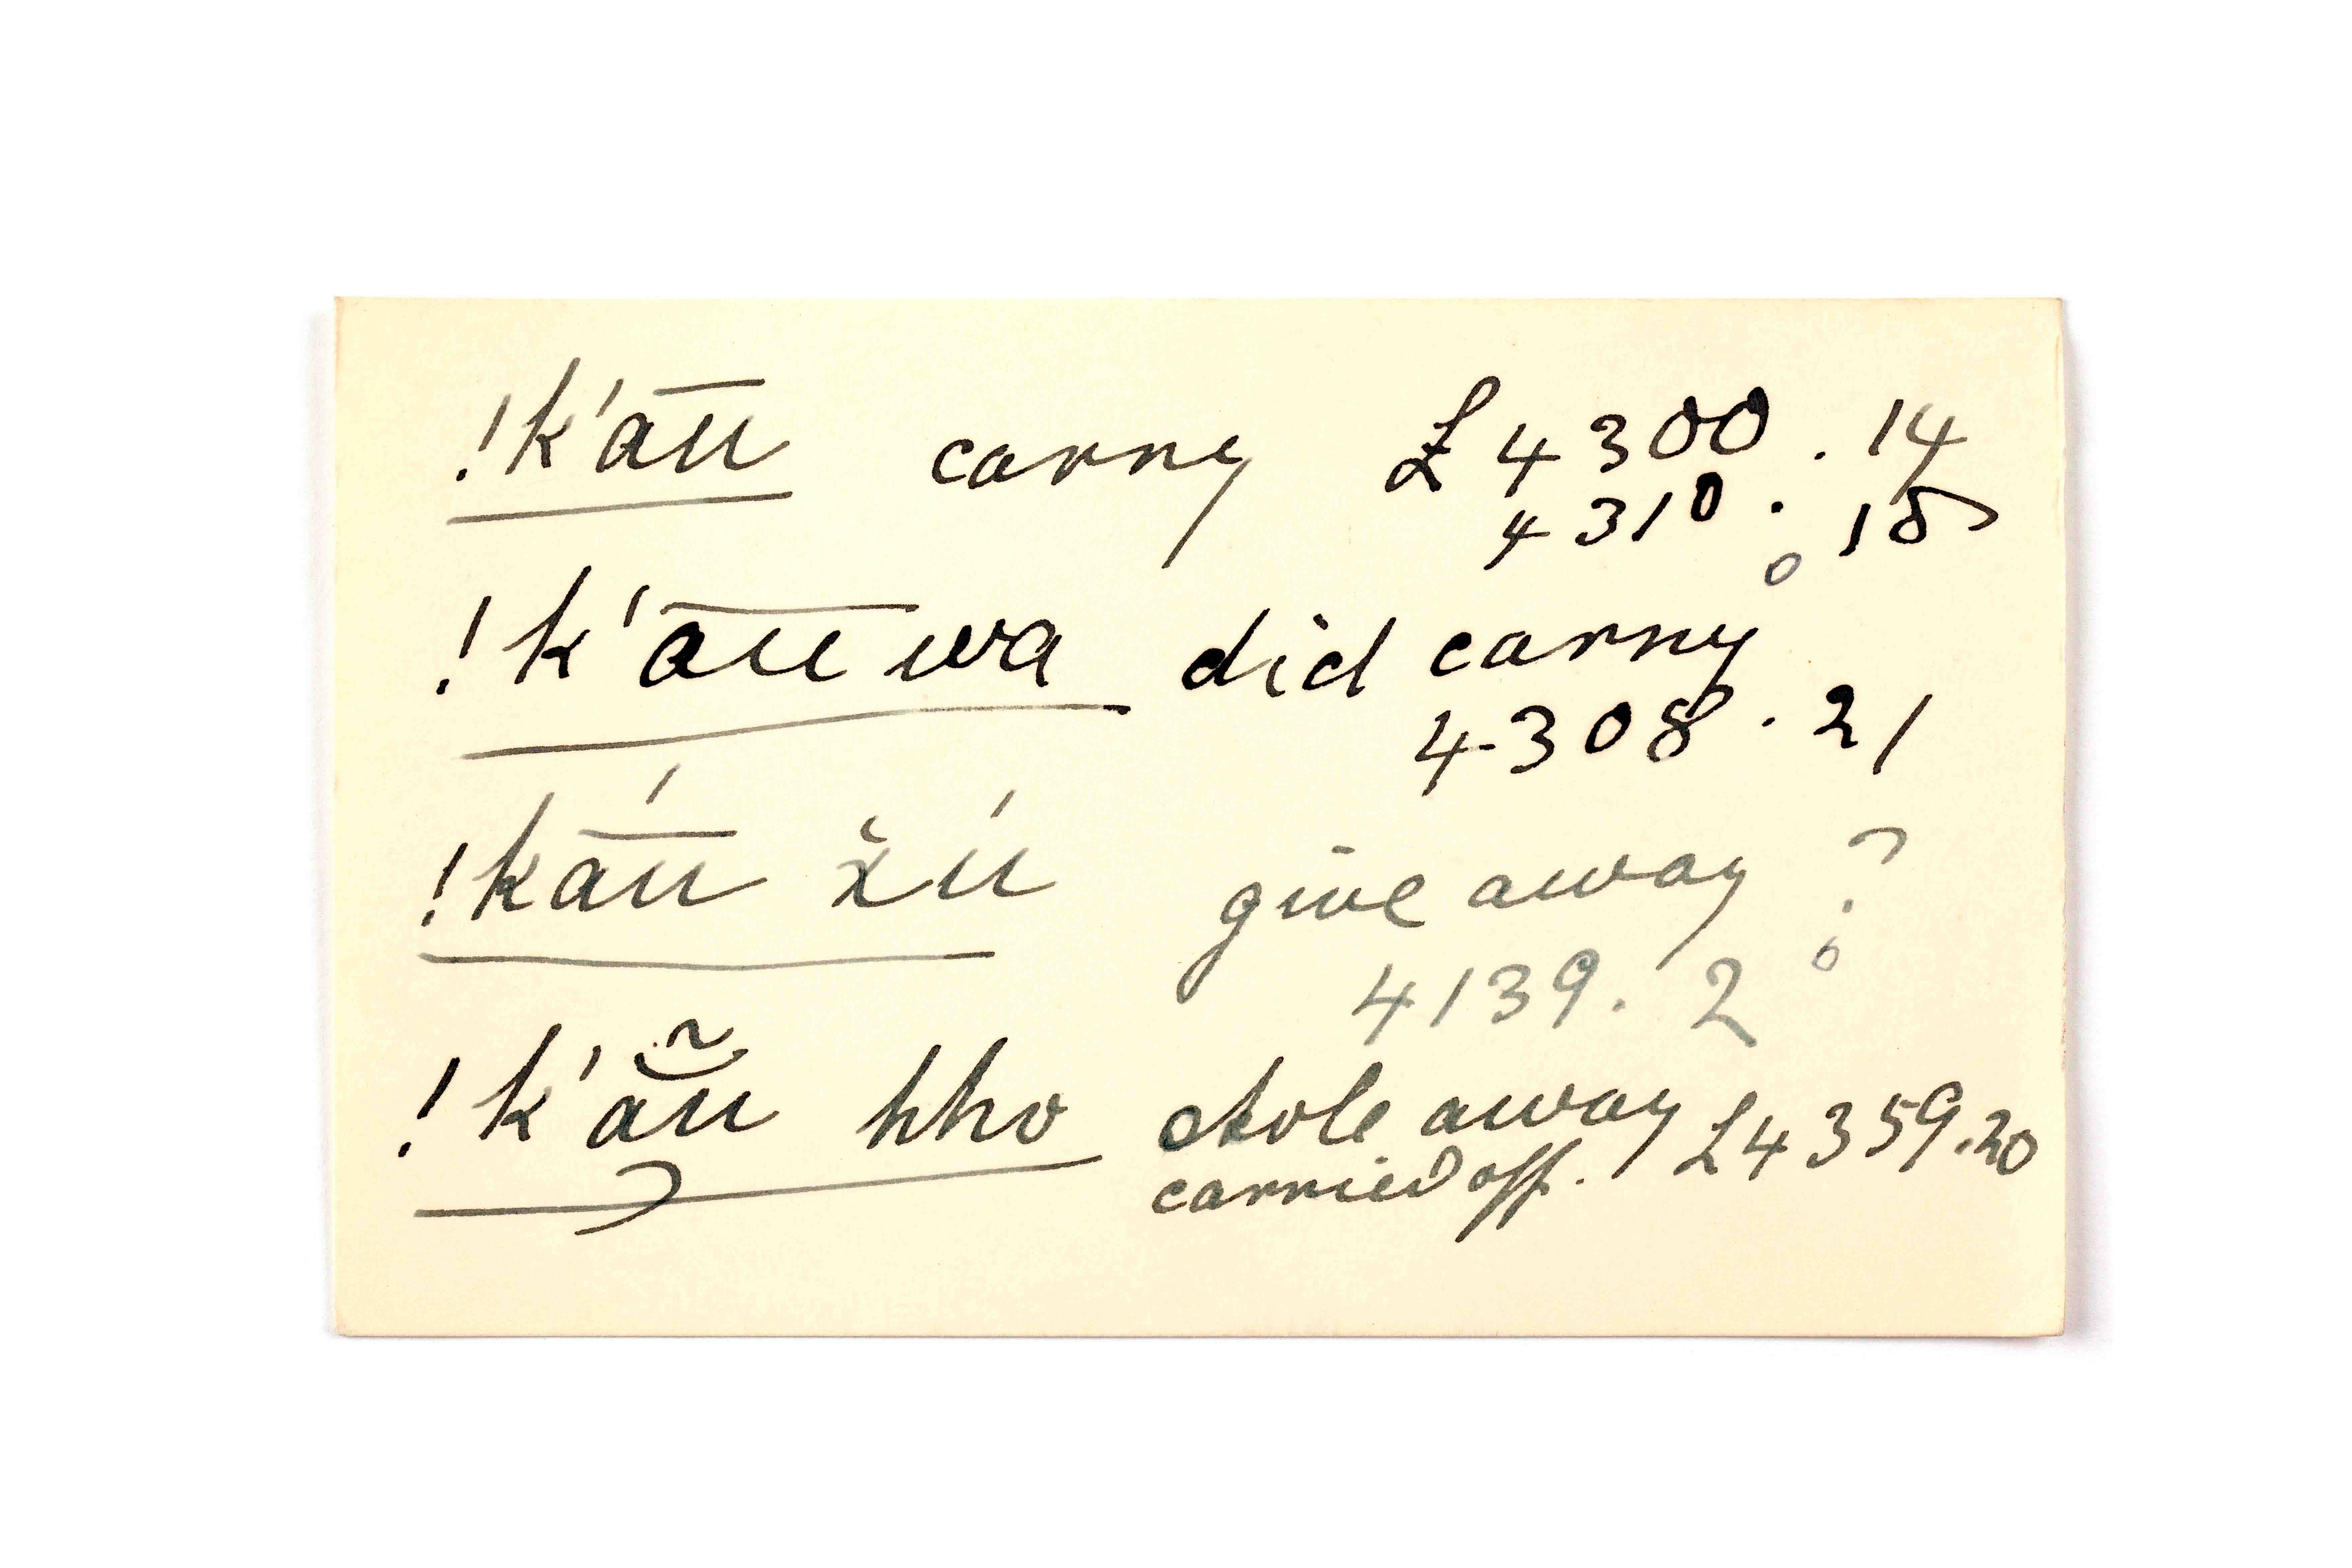 !k'a͞u carry £4300.14
4310.15
!k'a͞uwa did carry
4308.21
!ká͞u x̌ú give away ?
4139.2
!k'ã̆u hho stole away L4359.20
carried off.